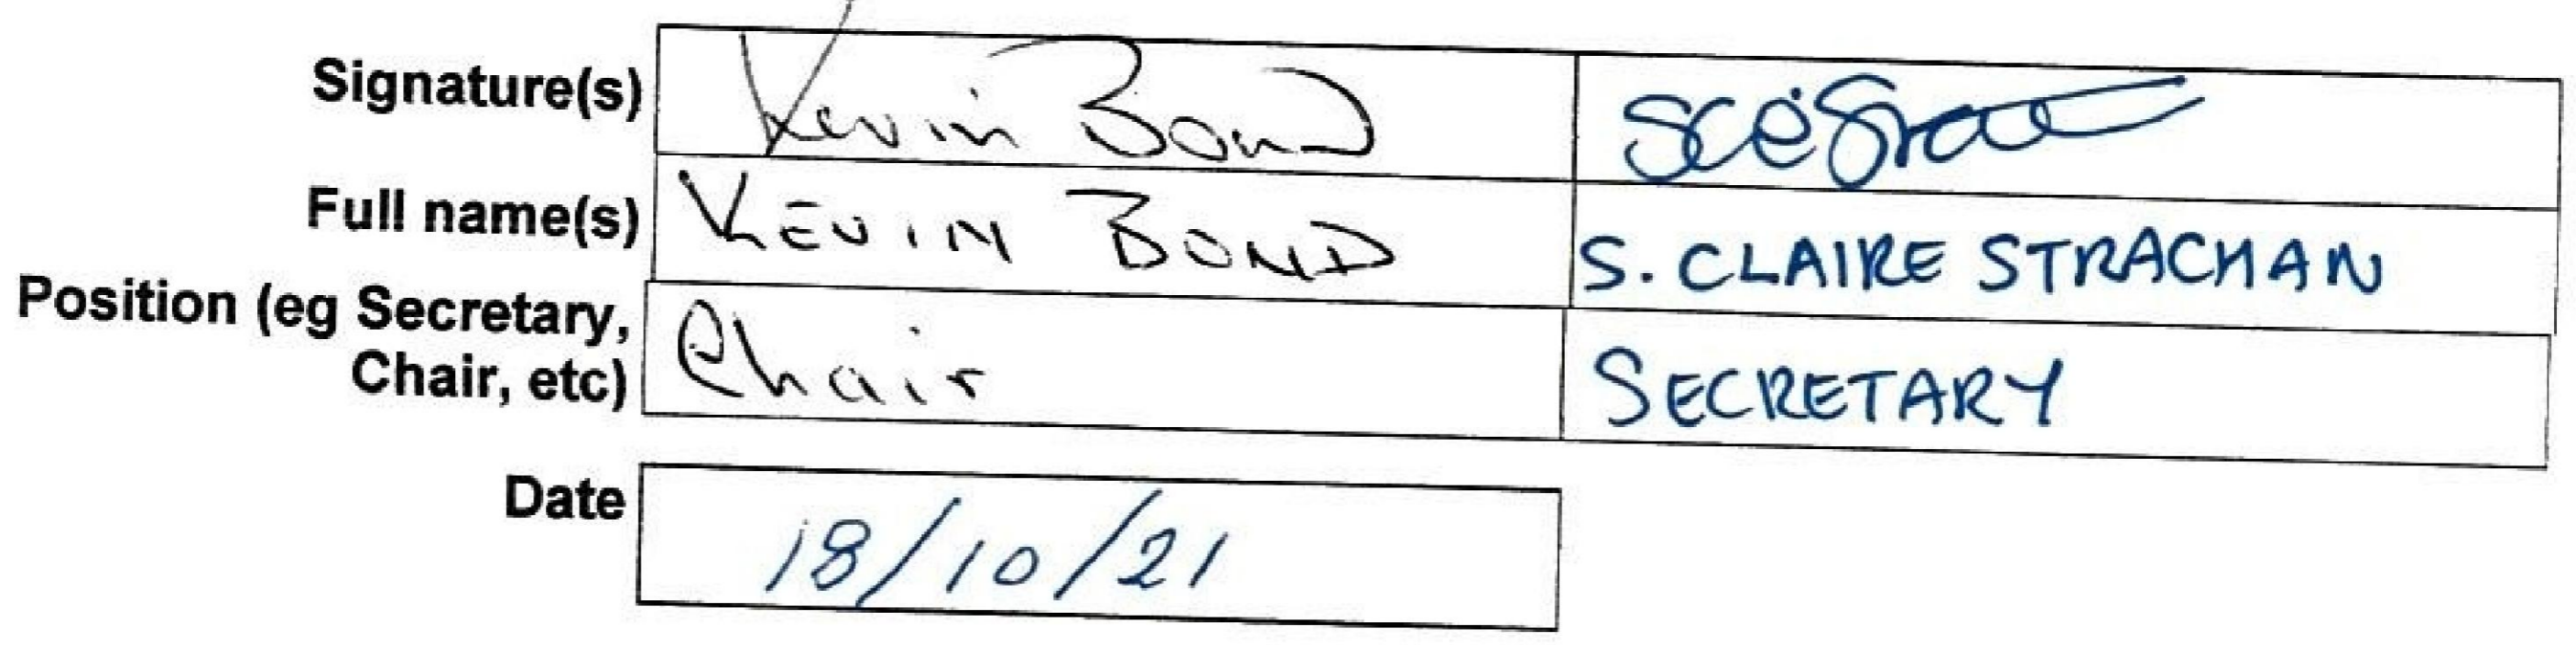 Signature(s) Kevin Bond
Full name(s) KEVIN BOND S. CLAIRE STRACHAN
Position (eg Secretary, Chair, etc) Chair SECRETARY
Date 18/10/21